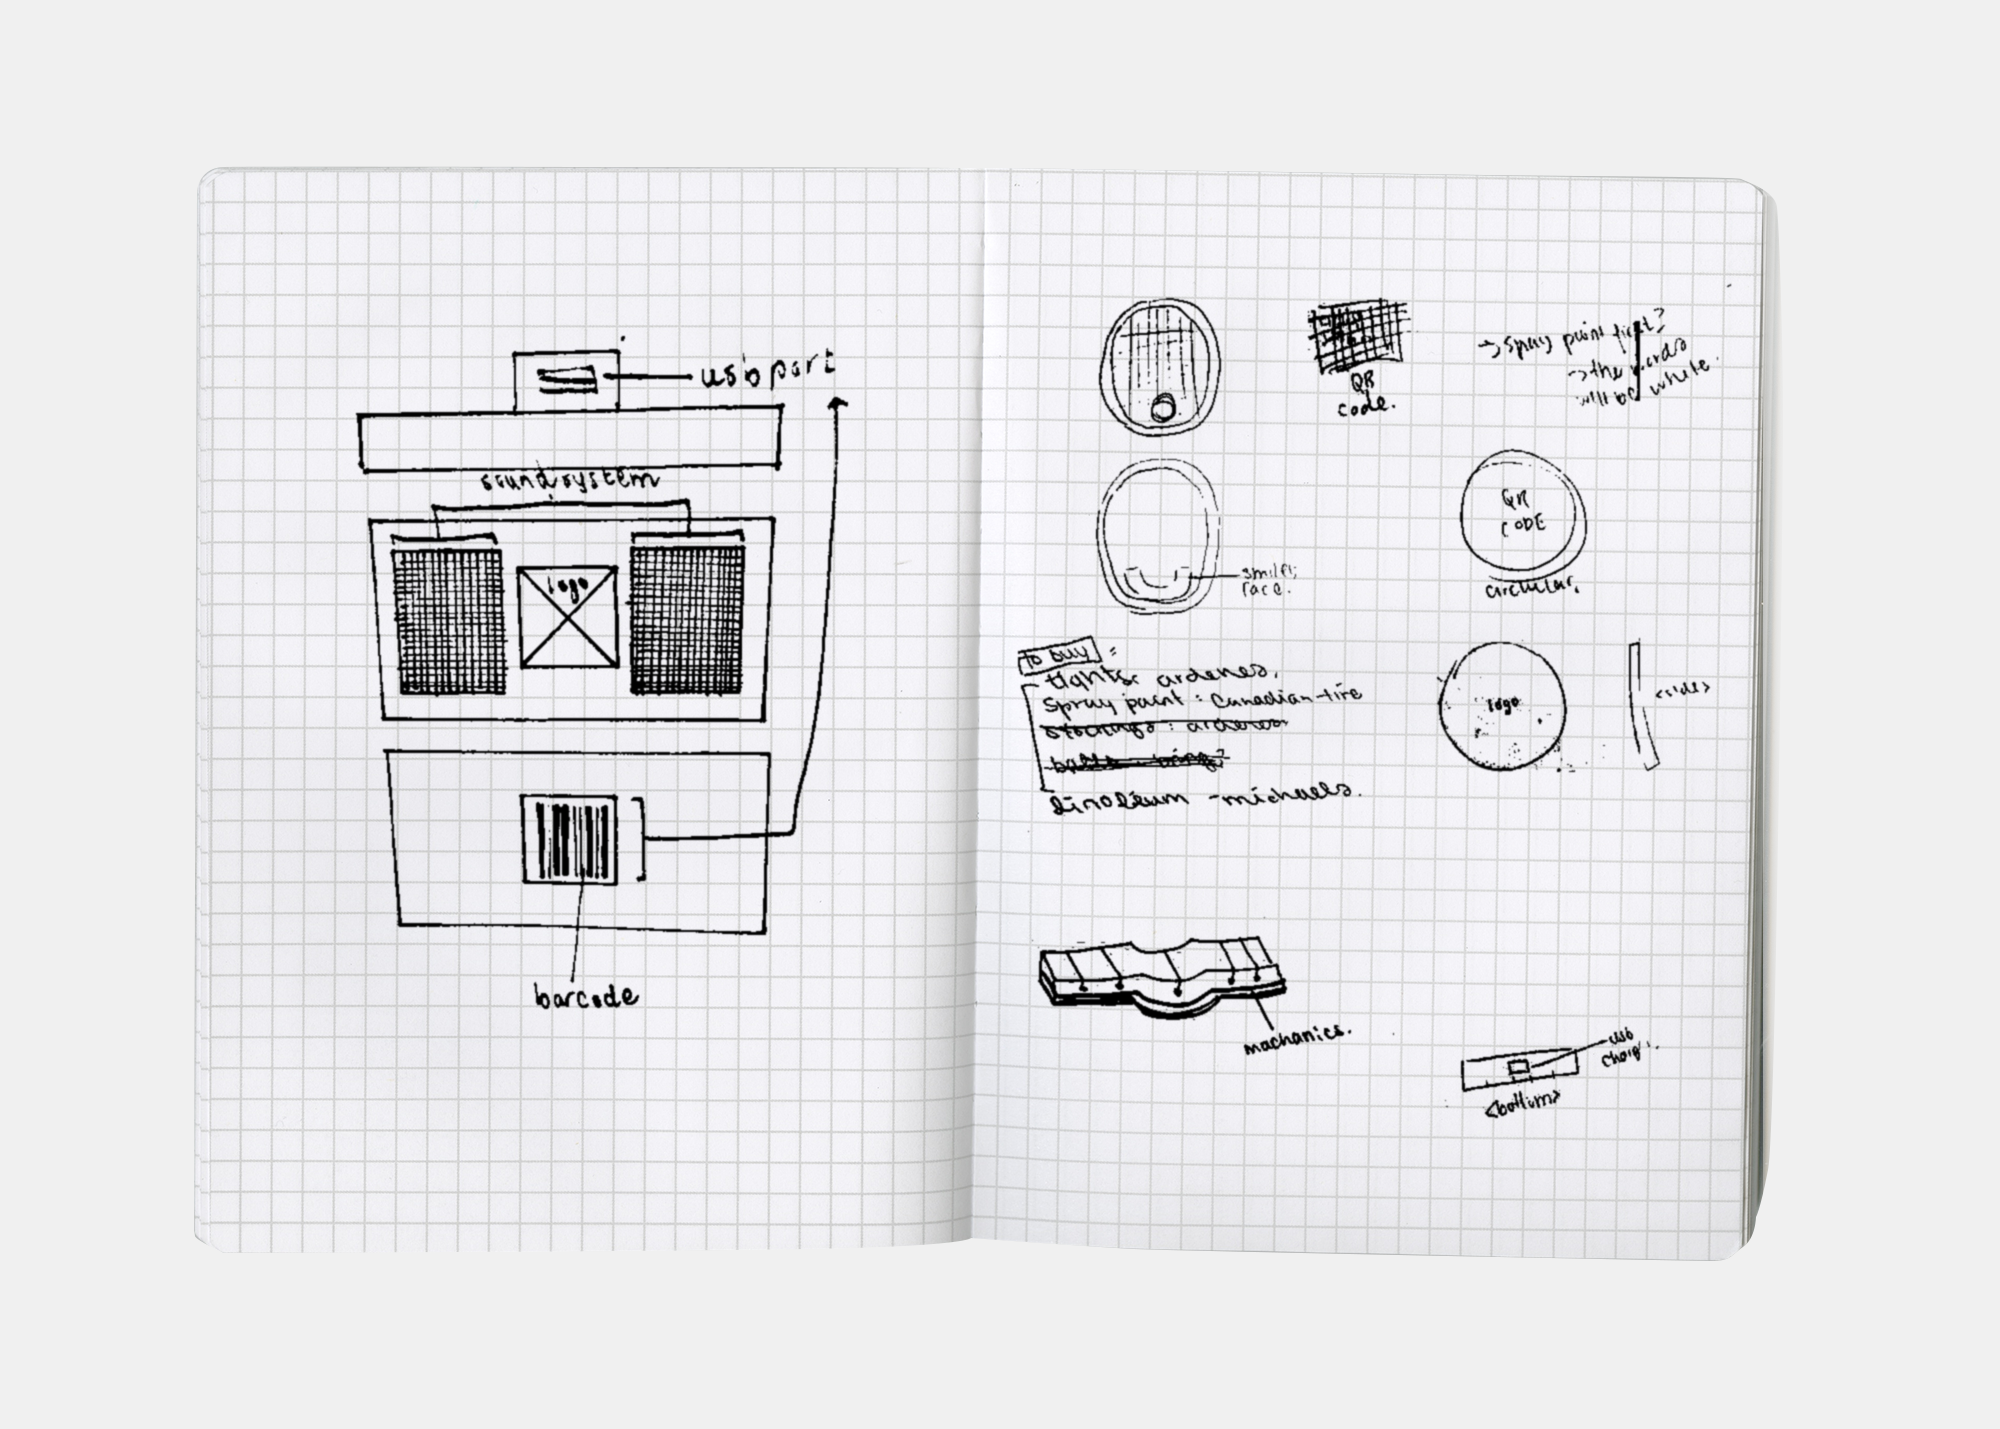 usb port
sound system
logo
barcode
QR
code.
→ spray paint first?
→ the
will be white.
QR
CODE
circular.
smiley
face.
to buy :
tights: ardenes.
Spray paint : Canadian-tire
stockings : ardenes
linoleum - michaels.
logo
<side>
machanics.
usb
<bottom>